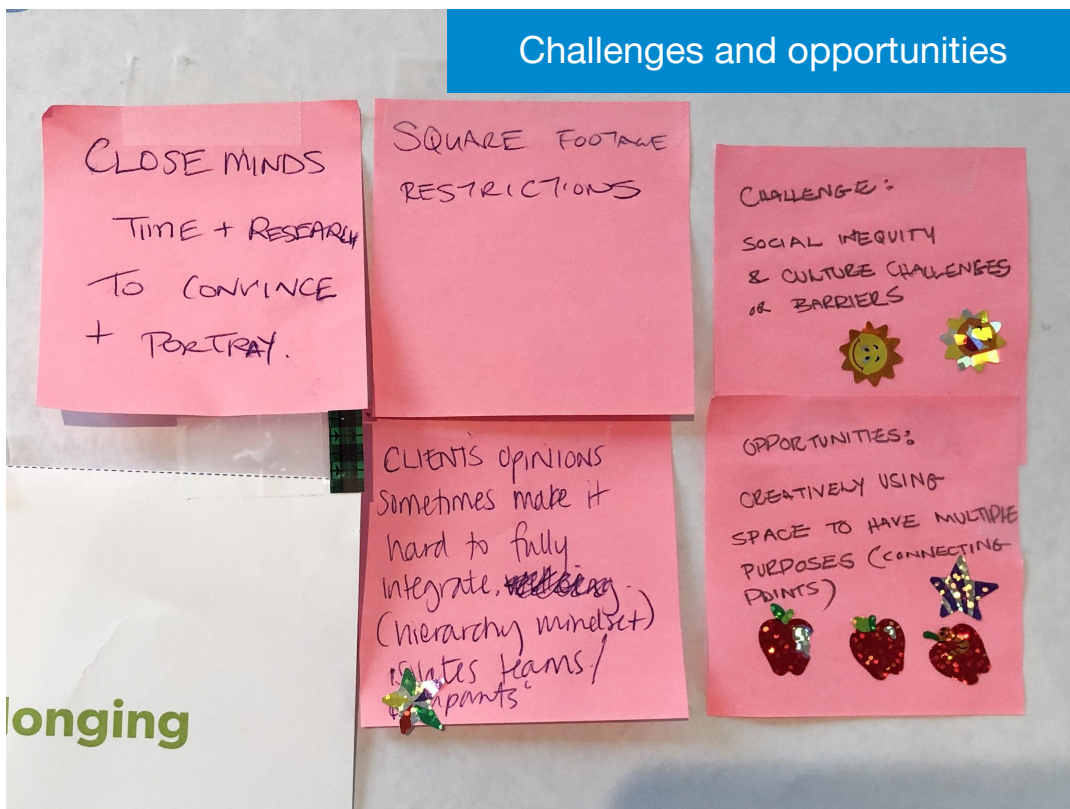 Challenges and opportunities
CLOSE MINDS
TIME + RESEARCH
TO CONVINCE
+ PORTRAY.
SQUARE FOOTAGE
RESTRICTIONS
CHALLENGE:
SOCIAL INEQUITY
& CULTURE CHALLENGES
OR BARRIERS
CLIENT'S OPINIONS
sometimes make it
hard to fully
integrate.
(hierarchy mindset)
isolates teams/
OPPORTUNITIES:
CREATIVELY USING
SPACE TO HAVE MULTIPLE
PURPOSES (CONNECTING
POINTS)
longing